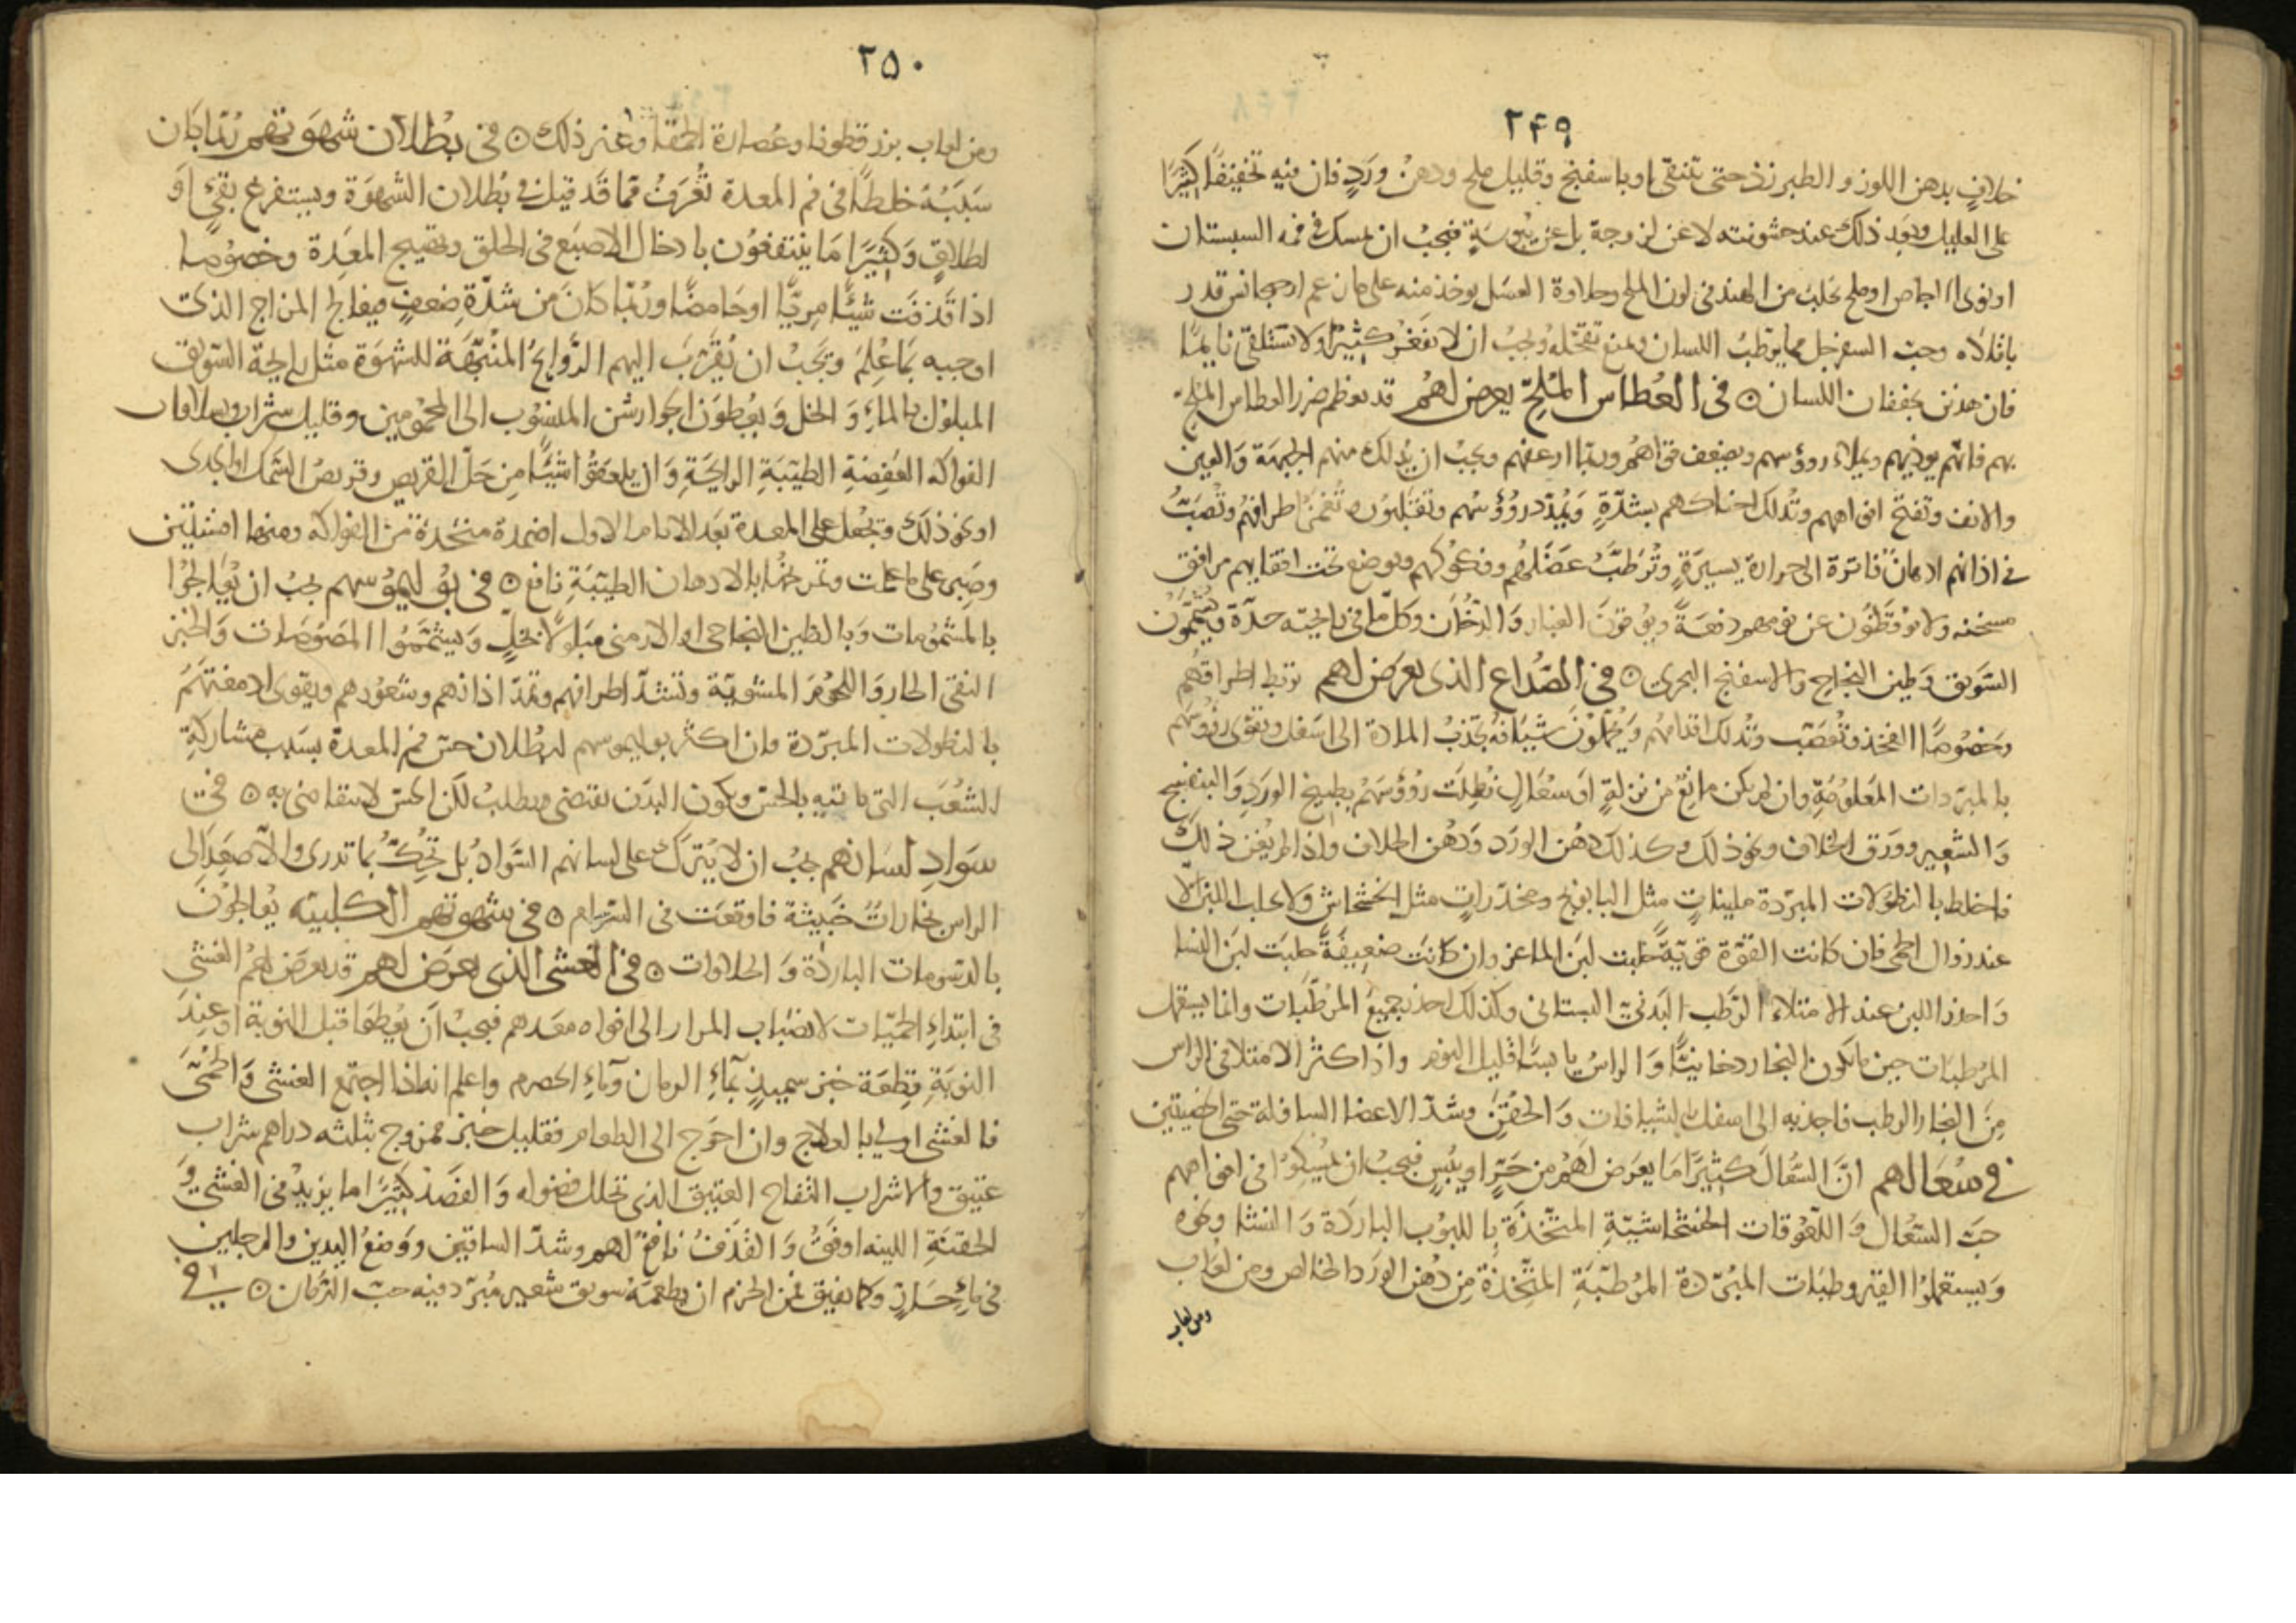 ٢۴٩
خلافٍ بدهن اللوز و الطبرزذ حتى تتنقّى او باسفنج وقليل ملح ودهن ورَدٍ فان فيه تخفيفًا كثيرًا
على العليل وبعد ذلك عند خشونته لا عن لزوجة بل عن يبوسَةٍ فيجبُ ان يمسك فى فمه السبستان
او نوى الاجاص او ملح يجلب من الهند فى لون الملح وحلاوة العسَل يوخذ منه على ما زعم ارجيجانس قدر
باقلاه وحبّ السفرجل مما يرطبُ اللسان ويمنع تقحّله ويجبُ ان لا يفغر كثيرًا ولا تستلقى نايمًا
فان هذين يجففان اللسان ۞ فى العُطاس المُلحّ يعرض لهُم قد يعظم ضرر العطاس الملحّ
بهم فانّه يوذيهم ويملاء رووسهم ويضعف قواهُم وربّما ارعفهم ويجبُ ان يُدلك منهم الجبهَة وَالعين
والانف وتفتح افواههم وتُدلك احناكهم بشدّةٍ وَيُمدّد روؤسُهم وتُغمزُ اطرافهُم وتُصَبّ
فى اذانهم ادهان فاترة الى الحرارة يسيرَةٍ وتُرطّبُ عضَلهُم وفكوكهم ويوضع تحت اقفايهم مرافق
مسخنه ولا يوقظُون عن نومهم دفعَةً ويوقونَ الغبار وَالدّخُان وكلّ ما فى رايحته حدّة ويشمّون
السَويق وَطين النجاح والاسفنج البحرى ۞ فى الصُّداع الذى يعرَض لهم تربط اطرافهُم
وخصُوصًا الفخذ وتُعصَب وتُدلك اقدامهُم وَيُحمّلونَ شيافة تجذبُ المادة الى اسَفل وتقوّى رؤوسهُم
بالمبرّدات المعَلومَةِ وان لم يكن مانعٌ من نزلةٍ اوَ سُعَالٍ نُطِلَت روؤسَهُم بطبيخ الورَدِ وَالبنفسج
وَالشعير وورَق الخلاف ونحو ذلك وكذلك دُهن الورَد وَدهن الخلاف واذا لم يُغن ذلكَ
فاخلط بالنطولات المبرّدة مليناتٍ مثل البابونج ومخدّراتٍ مثل الخشخاش وَلا يحلب اللبن الّا
عند زوال الحمى فان كانت القوّة قويّةً حُلبت لبَن الماعز وان كانَت ضعيفَةً حلبَت لبَن النسا
وَاحذر اللبن عند الامتلاء الرَطب البَدنىّ البستانى وكذلك احذر جميعَ المُرطّبات وانما يستعمل
المرُطبات حين ما يكون البخار دخانيًّا وَالراسُ يابسًا قليل النوم واذا كثر الامتلا فى الراس
مِنَ البخار الرطب فاجذبه الى اسفل بالشيافات وَالحُقنِ وشدّ الاعضا السافلة حتى الخصيتين
فى سُعَالهم انَّ السُعَالَ كثيرًا مَا يعرَض لهُم من حَرٍّ او يُبسٍ فيجبُ ان يُمسِكوُا فى افواههم
حبّ السّعُال وَاللّعُوقات الخشخاشيّةِ المتّخذَة بِاللبوُب الباردَة وَالنشا ونحوه
وَيستعملوُا القيروطيَات المُبرّدة المرُطبّةِ المتّخذَة مِن دُهن الورَد الخالص ومن لعاب
ومن لعاب
٢٥٠
ومن لعاب بزر قطونا وعُصارة الحمقا وغير ذلك ۞ فى بُطلان شهوَتهم رُبّما كان
سَبَبُهُ خلطًا فى فم المعدة تُعرَفُ ممّا قَد قيل فى بُطلان الشهوَة ويستفرغ بقىءٍ اوَ
اطلاقٍ وَكثيرًا مَا ينتفعُون بادخال الاصبَع فى الحلق وتهييج المعَدة وخصُوصا
اذا قَذفَت شيئًا مِريًّا او حَامضًا ورُبّما كانَ مِن شدّةِ ضعفٍ فيعالج المزاج الذى
اوجبه بمَا عُلِمَ وَيجَبُ ان يُقرّبَ اليهم الرَّوايحُ المنبّهَة للشهوَة مثل رايحة السَويق
المبلوُل بالماءِ وَ الخل وَ يعُطوَن الجوارشن المنسُوب الى المحمُومين وقليل شراب وسلاقات
الفواكه العَفِصَةِ الطيّبَةِ الرايحَةِ وَان يلعَقوُا شيئًا مِن خَلّ القريص وقريصُ السَمك او الجدى
او نحو ذلكَ وتجُعل على المعدة بعَد الايام الاول اضمدة متخذة من الفواكه ومنها افسنتين
وصَبرٍ على ما علمت وتمريخُها بالادهان الطيّبَةِ نافع ۞ فى بوُليموُسهم يجبُ ان يُعالجوُا
بالمشموُمات وَبالطين النجاحى او الارمنى مبلولاً بخلٍّ وَيشتمّوُا المصَوُصات وَالخبز
النقى الحار وَاللحُومَ المشويّة وتشدّ اطرافهم وتمدّ اذانهم وشعُورهم ويقوى ادمغتهُم
بالنطولات المبرّدة فان اكثر بوليموسهم لبطُلان حسّ فم المعدة بسَبب مشاركةِ
الشعُبَ التى ياتيه بالحسّ ويكون البدَن يقتضى ويطلبُ لكن الحسّ لا يتقاضى به ۞ فى
سَوَادِ لسَانهم يجبُ ان لا يُترَك على لسانهم السَوادُ بل تحُكّ بما تدرى والّا صَعِدَ الى
الراس بخارات خَبيثة فاوقعَت فى السَرسَام ۞ فى شهوتهم الكلبية يُعالجوُنَ
بالدسُومات الباردَة وَ الحلاوات ۞ فى الغشى الذى يعرَض لهم قد يعرَض لهُمُ الغشى
فى ابتداءِ الحمّيات لانصَباب المرار الى افواه معَدهم فيجبُ اَن يُطعَما قبل النوبة او عِندَ
النوبَةِ قطعَة خبز سميذٍ بمآءِ الرمان ومآءِ الحصرم واعلم انه اذا اجتمع الغشى وَالحمُّى
فالغشى اولى بالعلاج وان احوَج الى الطعام فقليل خبز ممزوج بثلثه دراهم شراب
عتيق والا شراب التفاح العتيق الذى تحلل فضوله وَ الفصَد كثيرَاما يزيدُ فى الغشى وَ
الحقنَةِ اللينه اوفقُ وَ القذَفُ نافعٌ لهم وشدّ الساقين ووَضعُ اليدين والرجلين
فى ماءٍ حَارٍّ وكما يفيق فمن الحزم ان يطعمَهُ سويق شعير مُبرّد فيه حبّ الرمّان ۞ فى